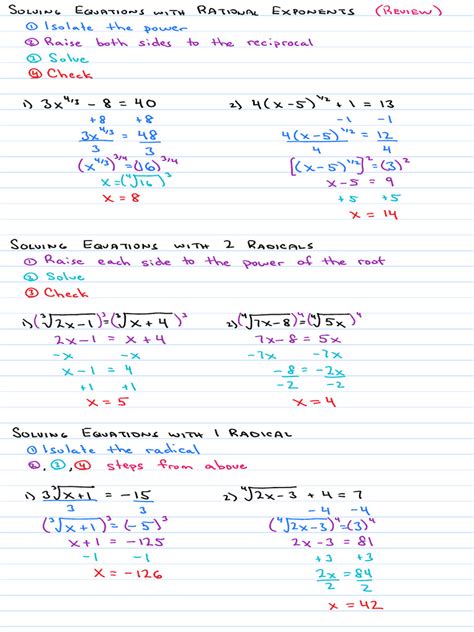 SOLVING EQUATIONS WITH RATIONAL EXPONENTS (REVIEW)
① Isolate the power
② Raise both sides to the reciprocal
③ Solve
④ Check
1) 3x^(4/3) - 8 = 40
+8 +8
3x^(4/3) = 48
3 3
(x^(4/3))^(3/4) = (16)^(3/4)
x = (∜16)^3
x = 8
2) 4(x-5)^(1/2) + 1 = 13
-1 -1
4(x-5)^(1/2) = 12
4 4
[(x-5)^(1/2)]^2 = (3)^2
x-5 = 9
+5 +5
x = 14
SOLVING EQUATIONS WITH 2 RADICALS
① Raise each side to the power of the root
② Solve
③ Check
1) (∛2x-1)^3 = (∛x+4)^3
2x-1 = x+4
-x -x
x-1 = 4
+1 +1
x = 5
2) (∜7x-8)^4 = (∜5x)^4
7x-8 = 5x
-7x -7x
-8 = -2x
-2 -2
x = 4
SOLVING EQUATIONS WITH 1 RADICAL
① Isolate the radical
②, ③, ④ steps from above
1) 3∛x+1 = -15
3 3
(∛x+1)^3 = (-5)^3
x+1 = -125
-1 -1
x = -126
2) ∜2x-3 + 4 = 7
-4 -4
(∜2x-3)^4 = (3)^4
2x-3 = 81
+3 +3
2x = 84
2 2
x = 42